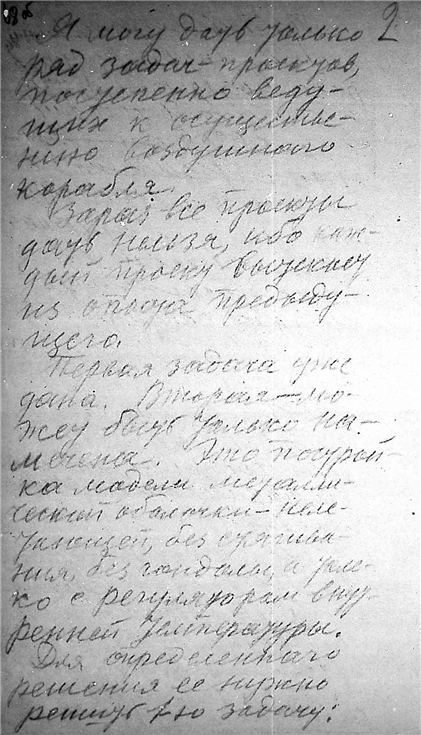 Я могу дать только 2
ряд задач-проектов,
постепенно веду-
щих к осуществле-
нию воздушного
корабля.
Зараз все проекты
дать нельзя, ибо каж-
дый проект вытекает
из опыта предыду-
щего.
Первая задача уже
дана. Вторая – мо-
жет быть только на-
мечена. Это построй-
ка модели металли-
ческой оболочки – неле-
тающей, без стягива-
ния, без гондолы, а
ко с регулятором внут-
ренней температуры.
Для определеннаго
решения ее нужно
решить 1-ю задачу: